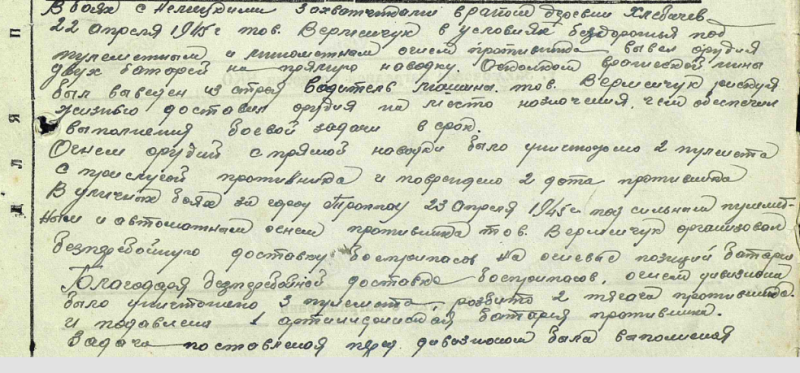 В боях с немецкими захватчиками в районе деревни Хлебичев
22 апреля 1945 г тов. Вермейчук в условиях бездорожья под
пулеметным и минометным огнем противника вывел орудия
двух батарей на прямую наводку. Осколком вражеской мины
был выведен из строя водитель машины. тов. Вермейчук рискуя
жизнью доставил орудия на место назначения, чем обеспечил
выполнения боевой задачи в срок.
Огнем орудий с прямой наводки было уничтожено 2 пулемета
с прислугой противника и повреждено 2 дота противника
В уличных боях за город Троппау 23 апреля 1945 г под сильным пулемет-
ным и автоматным огнем противника тов. Вермейчук организовал
безперебойную доставку боеприпасов на огневые позиций батареи
Благодаря безперебойной доставке боеприпасов, огнем дивизиона
было уничтожено 3 пулемета, розбито 2 тягача противника.
и подавлена 1 артиллерийская батарея противника.
Задача поставленая перед дивизионом была выполненая
П
Л
Я
Д